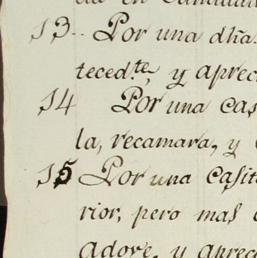 13.. Por una dha.
teced.te, y aprec
14 Por una cas
la, recamara, y
15 Por una casita
rior, pero mas
adove, y aprec